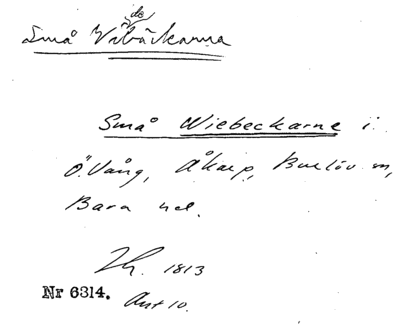 de
Små Vibäckarna
Små Wiebeckarne i
Ö. Vång, Åkarp, Burlöv sn,
Bara hd.
Lh. 1813
Nr 6314. Akt 10.